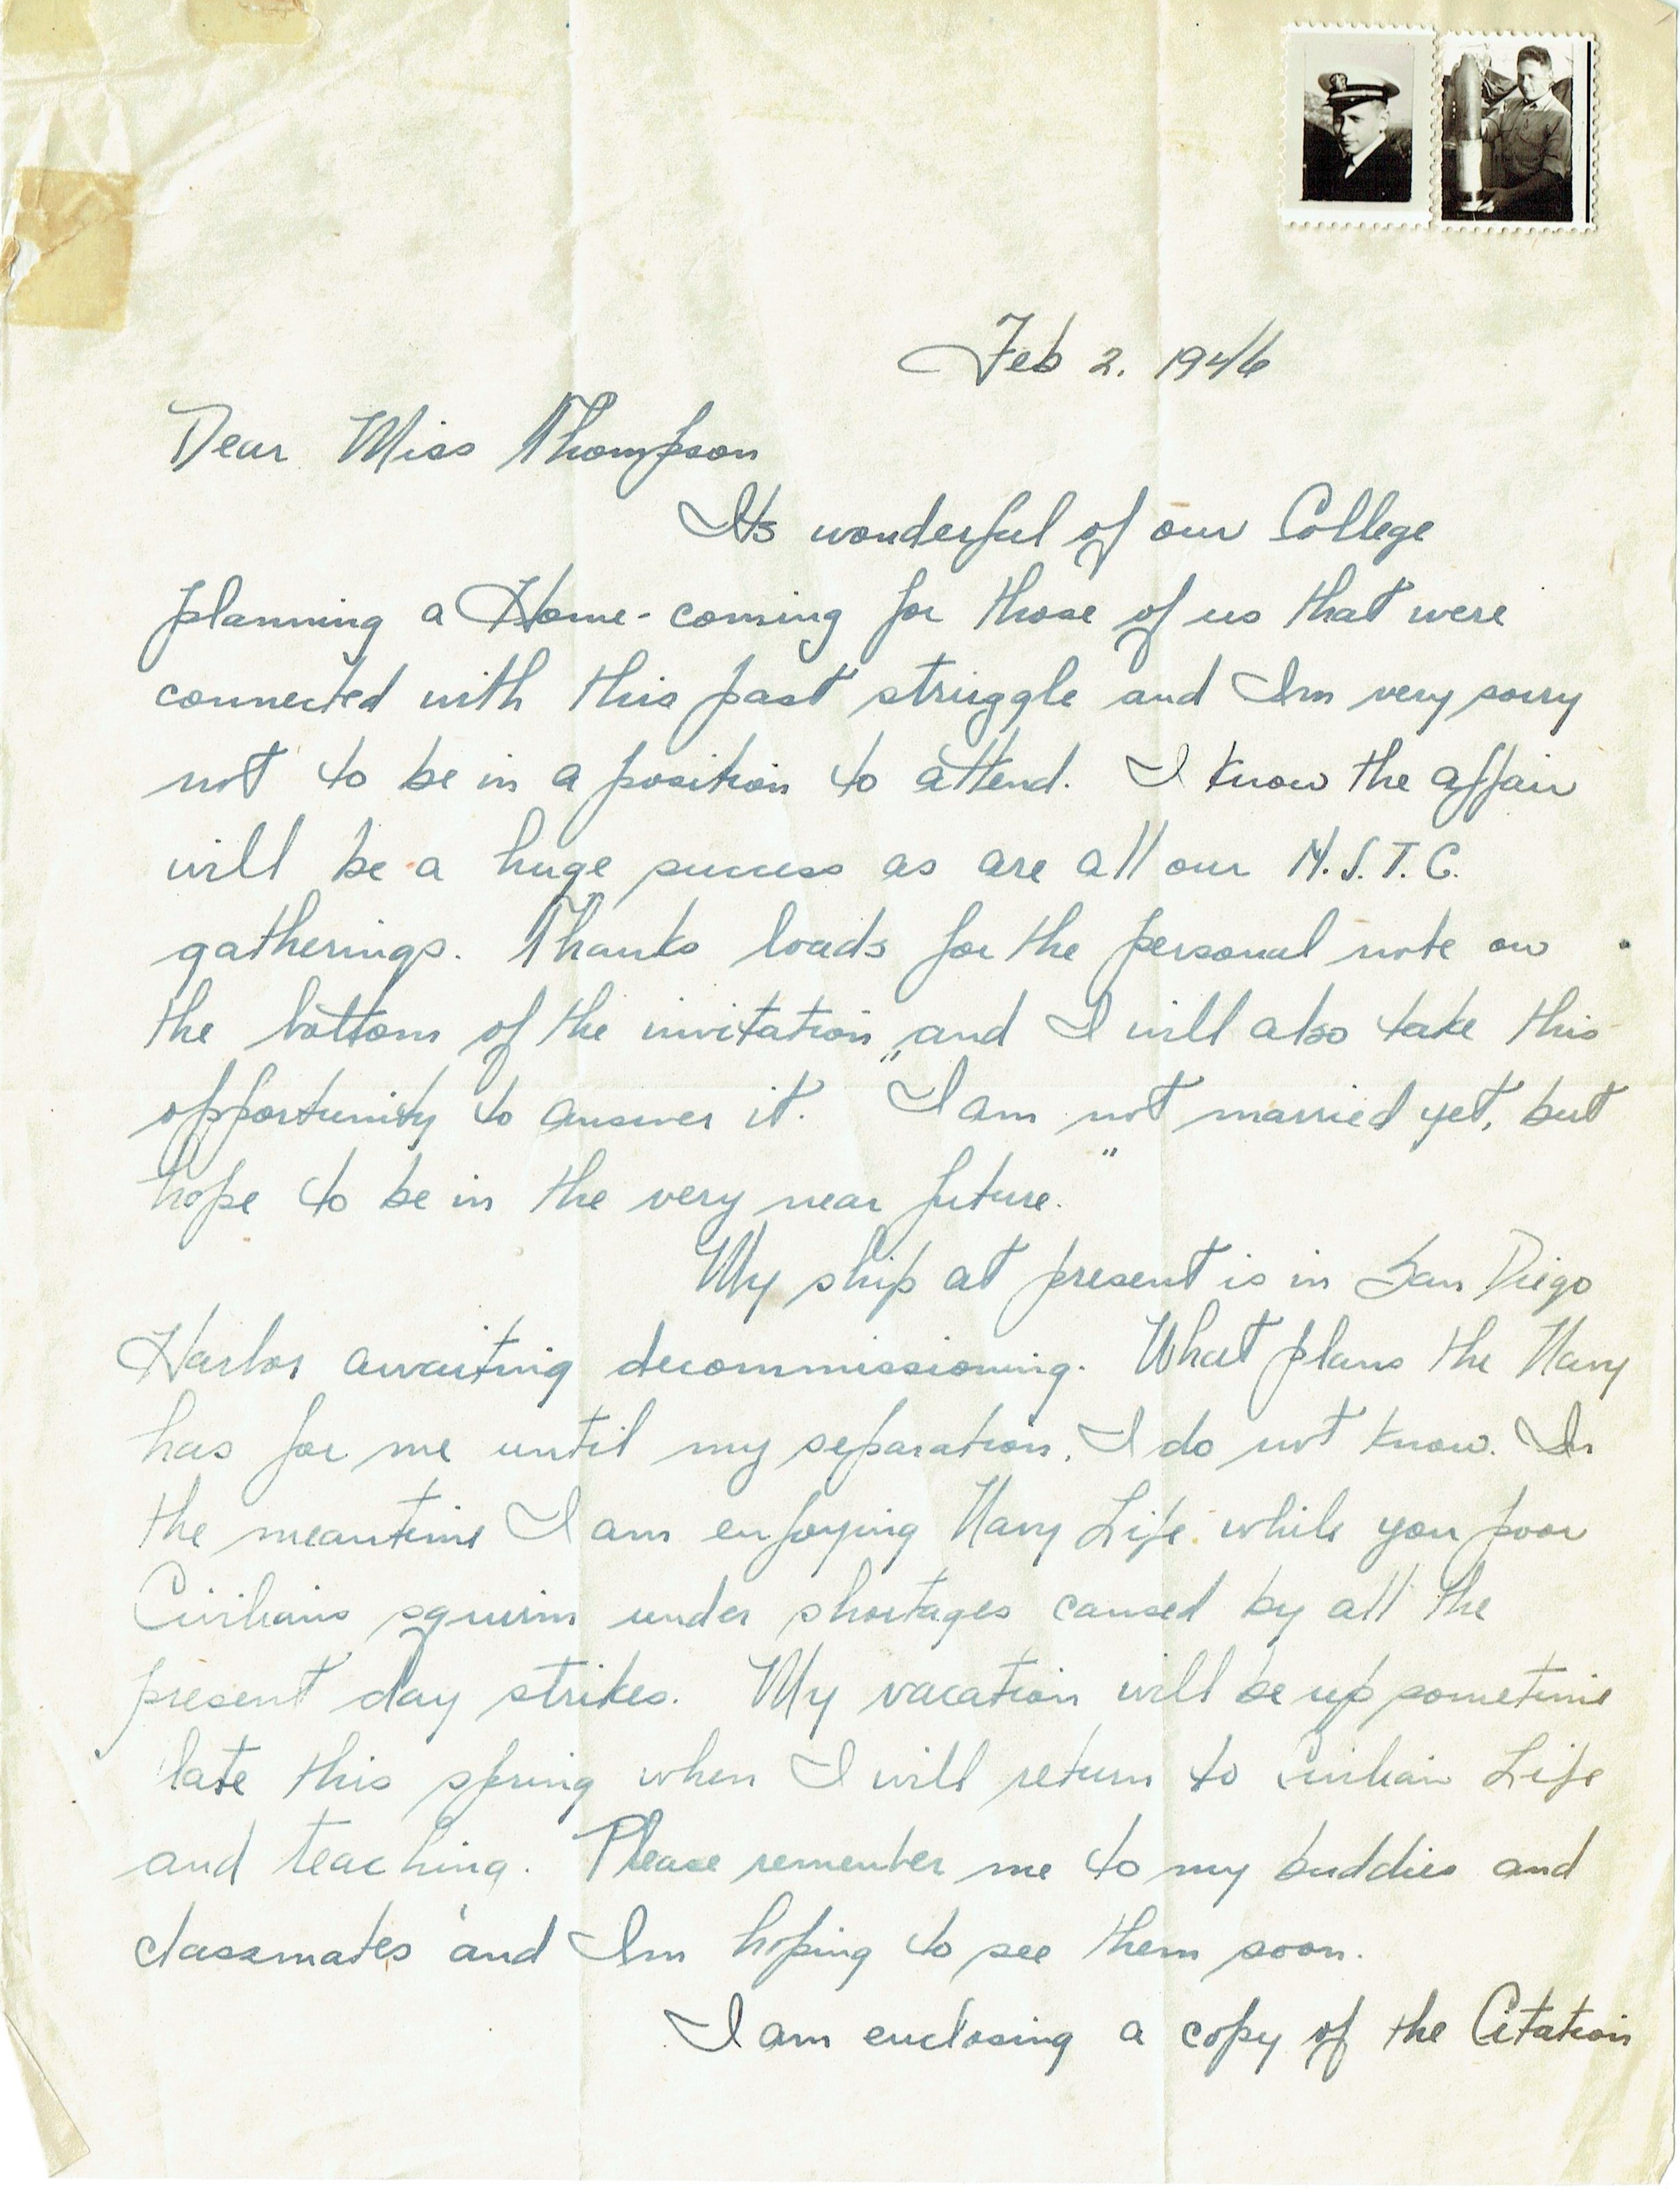 Feb 2. 1946
Dear Miss Thompson
Its wonderful of our College
planning a Home-coming for those of us that were
connected with this past struggle and Im very sorry
not to be in a position to attend. I know the affair
will be a huge success as are all our N.S.T.C.
gatherings. Thanks loads for the personal note on
the bottom of the invitation, and I will also take this
opportunity to answer it. "I am not married yet, but
hope to be in the very near future."
My ship at present is in San Diego
Harbor awaiting decommissioning. What plans the Navy
has for me until my separation, I do not know. In
the meantime I am enjoying Navy Life while you poor
Civilians squirm under shortages caused by all the
present day strikes. My vacation will be up sometime
late this spring when I will return to Civilian Life
and teaching. Please remember me to my buddies and
classmates and Im hoping to see them soon.
I am enclosing a copy of the Citation